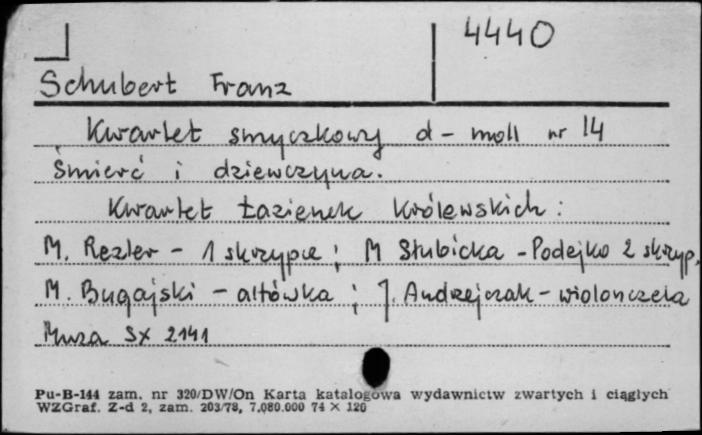 4440
Schubert Franz
Kwartet smyczkowy d-moll nr 14
Śmierć i dziewczyna.
Kwartet Łazienek Królewskich:
M. Rezler - 1 skrzypce; M Słubicka - Podejko 2 skrzyp.
M. Bugajski - altówka; J. Andrzejczak - wiolonczela
Muza SX 2141
Pu-B-144 zam. nr 320/DW/On Karta katalogowa wydawnictw zwartych i ciągłych
WZGraf. Z-d 2, zam. 203/78, 7.080.000 74 × 120